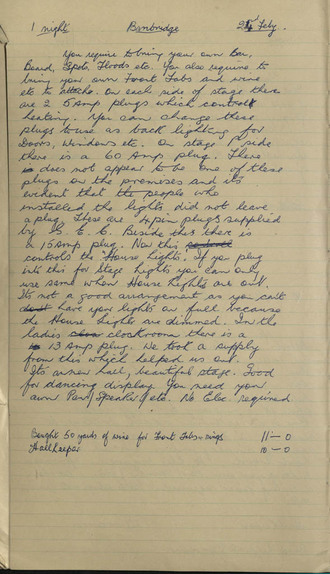 1 night Banbridge 25 Feby.
You require to bring your own Bar,
Board, Spots, Floods etc. You also require to
bring your own Front Tabs and wire
etc to attach. On each side of stage there
are 2 5 Amp plugs which control
heating. You can change these
plugs to use as back lighting for
Doors, Windows etc. On stage P side
there is a 60 Amp plug. There
is does not appear to be one of these
plugs on the premises and its
evident that the people who
installed the lights did not leave
a plug. These are 4 pin plugs supplied
by G. E. C. Beside this there is
a 15 Amp plug. Now this
controls the House lights. If you plug
into this for Stage lights you can only
use same when House lights are out.
Its not a good arrangement as you can't
have your lights on full because
the House lights are dimmed. In the
ladies cloakroom there is a
13 Amp plug. We took a supply
from this which helped us out.
Its a new hall, beautiful stage. Good
for dancing display. You need your
own Pan/Speaker/etc. No Elec. required.
Bought 50 yards of wire for Front Tabs & rings 11-0
Hallkeeper 10-0